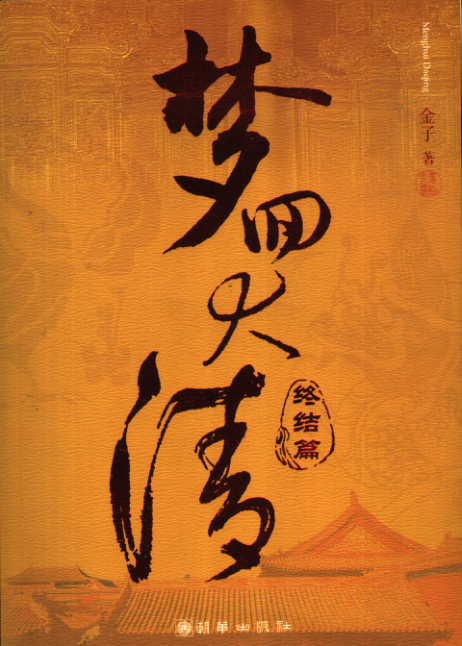 梦回大清
终结篇
Menghui Daqing
金子 著
朝华出版社